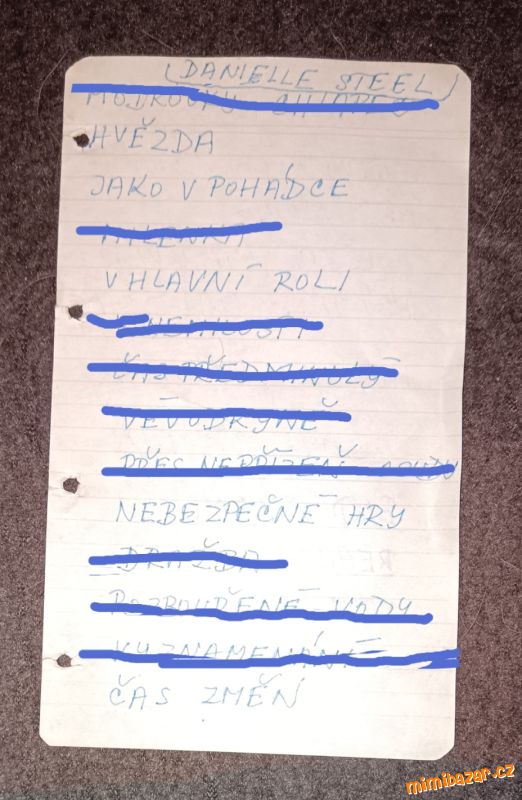 (DANIELLE STEEL)
HVĚZDA
JAKO V POHÁDCE
MILENKA
V HLAVNÍ ROLI
V NEMILOSTI
ČAS PŘEDMINULÝ
VÉVODKYNĚ
PŘES NEPŘÍZEŇ OSUDU
NEBEZPEČNÉ HRY
DRAŽBA
ROZBOUŘENÉ VODY
VYZNAMENÁNÍ
ČAS ZMĚN
mimibazar.cz